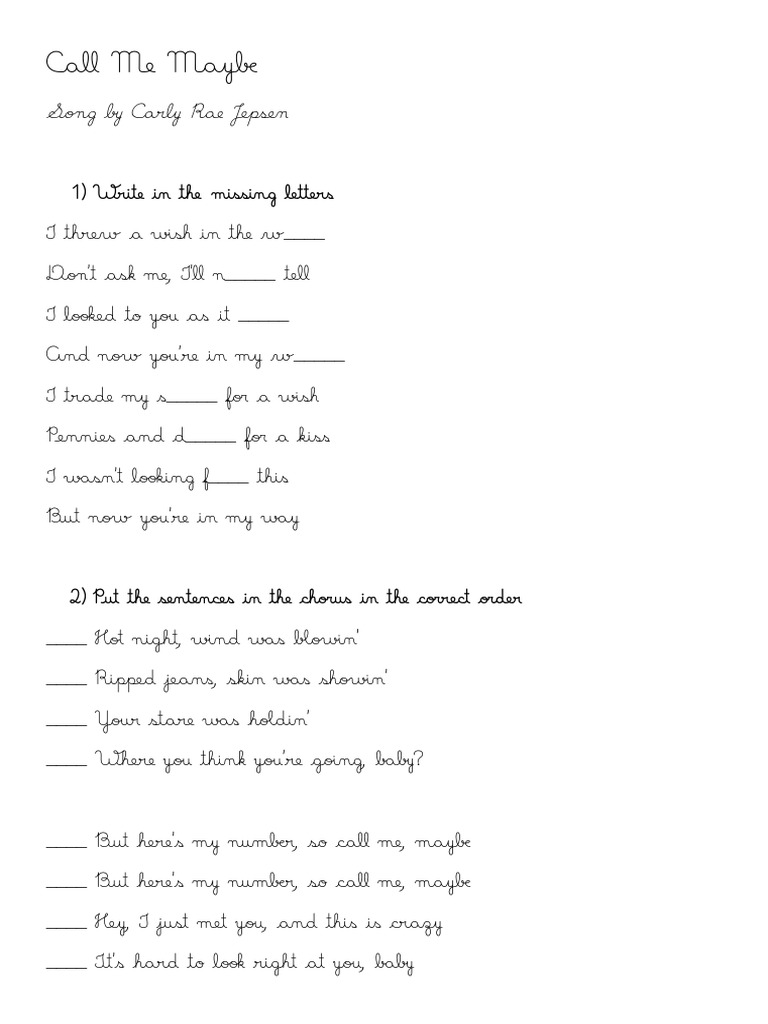 Call Me Maybe
Song by Carly Rae Jepsen
1) Write in the missing letters
I threw a wish in the w____
Don't ask me, I'll n_____ tell
I looked to you as it _____
And now you're in my w_____
I trade my s_____ for a wish
Pennies and d_____ for a kiss
I wasn't looking f____ this
But now you're in my way
2) Put the sentences in the chorus in the correct order
____ Hot night, wind was blowin'
____ Ripped jeans, skin was showin'
____ Your stare was holdin'
____ Where you think you're going, baby?
____ But here's my number, so call me, maybe
____ But here's my number, so call me, maybe
____ Hey, I just met you, and this is crazy
____ It's hard to look right at you, baby